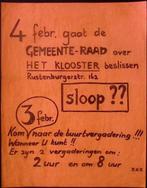 4 febr. gaat de
GEMEENTE-RAAD over
HET KLOOSTER beslissen
Rustenburgerstr.
sloop ??
3 febr.
Kom naar de buurtvergadering !!!
Wanneer U kunt !!
Er zijn 2 vergaderingen om:
2 uur en om 8 uur